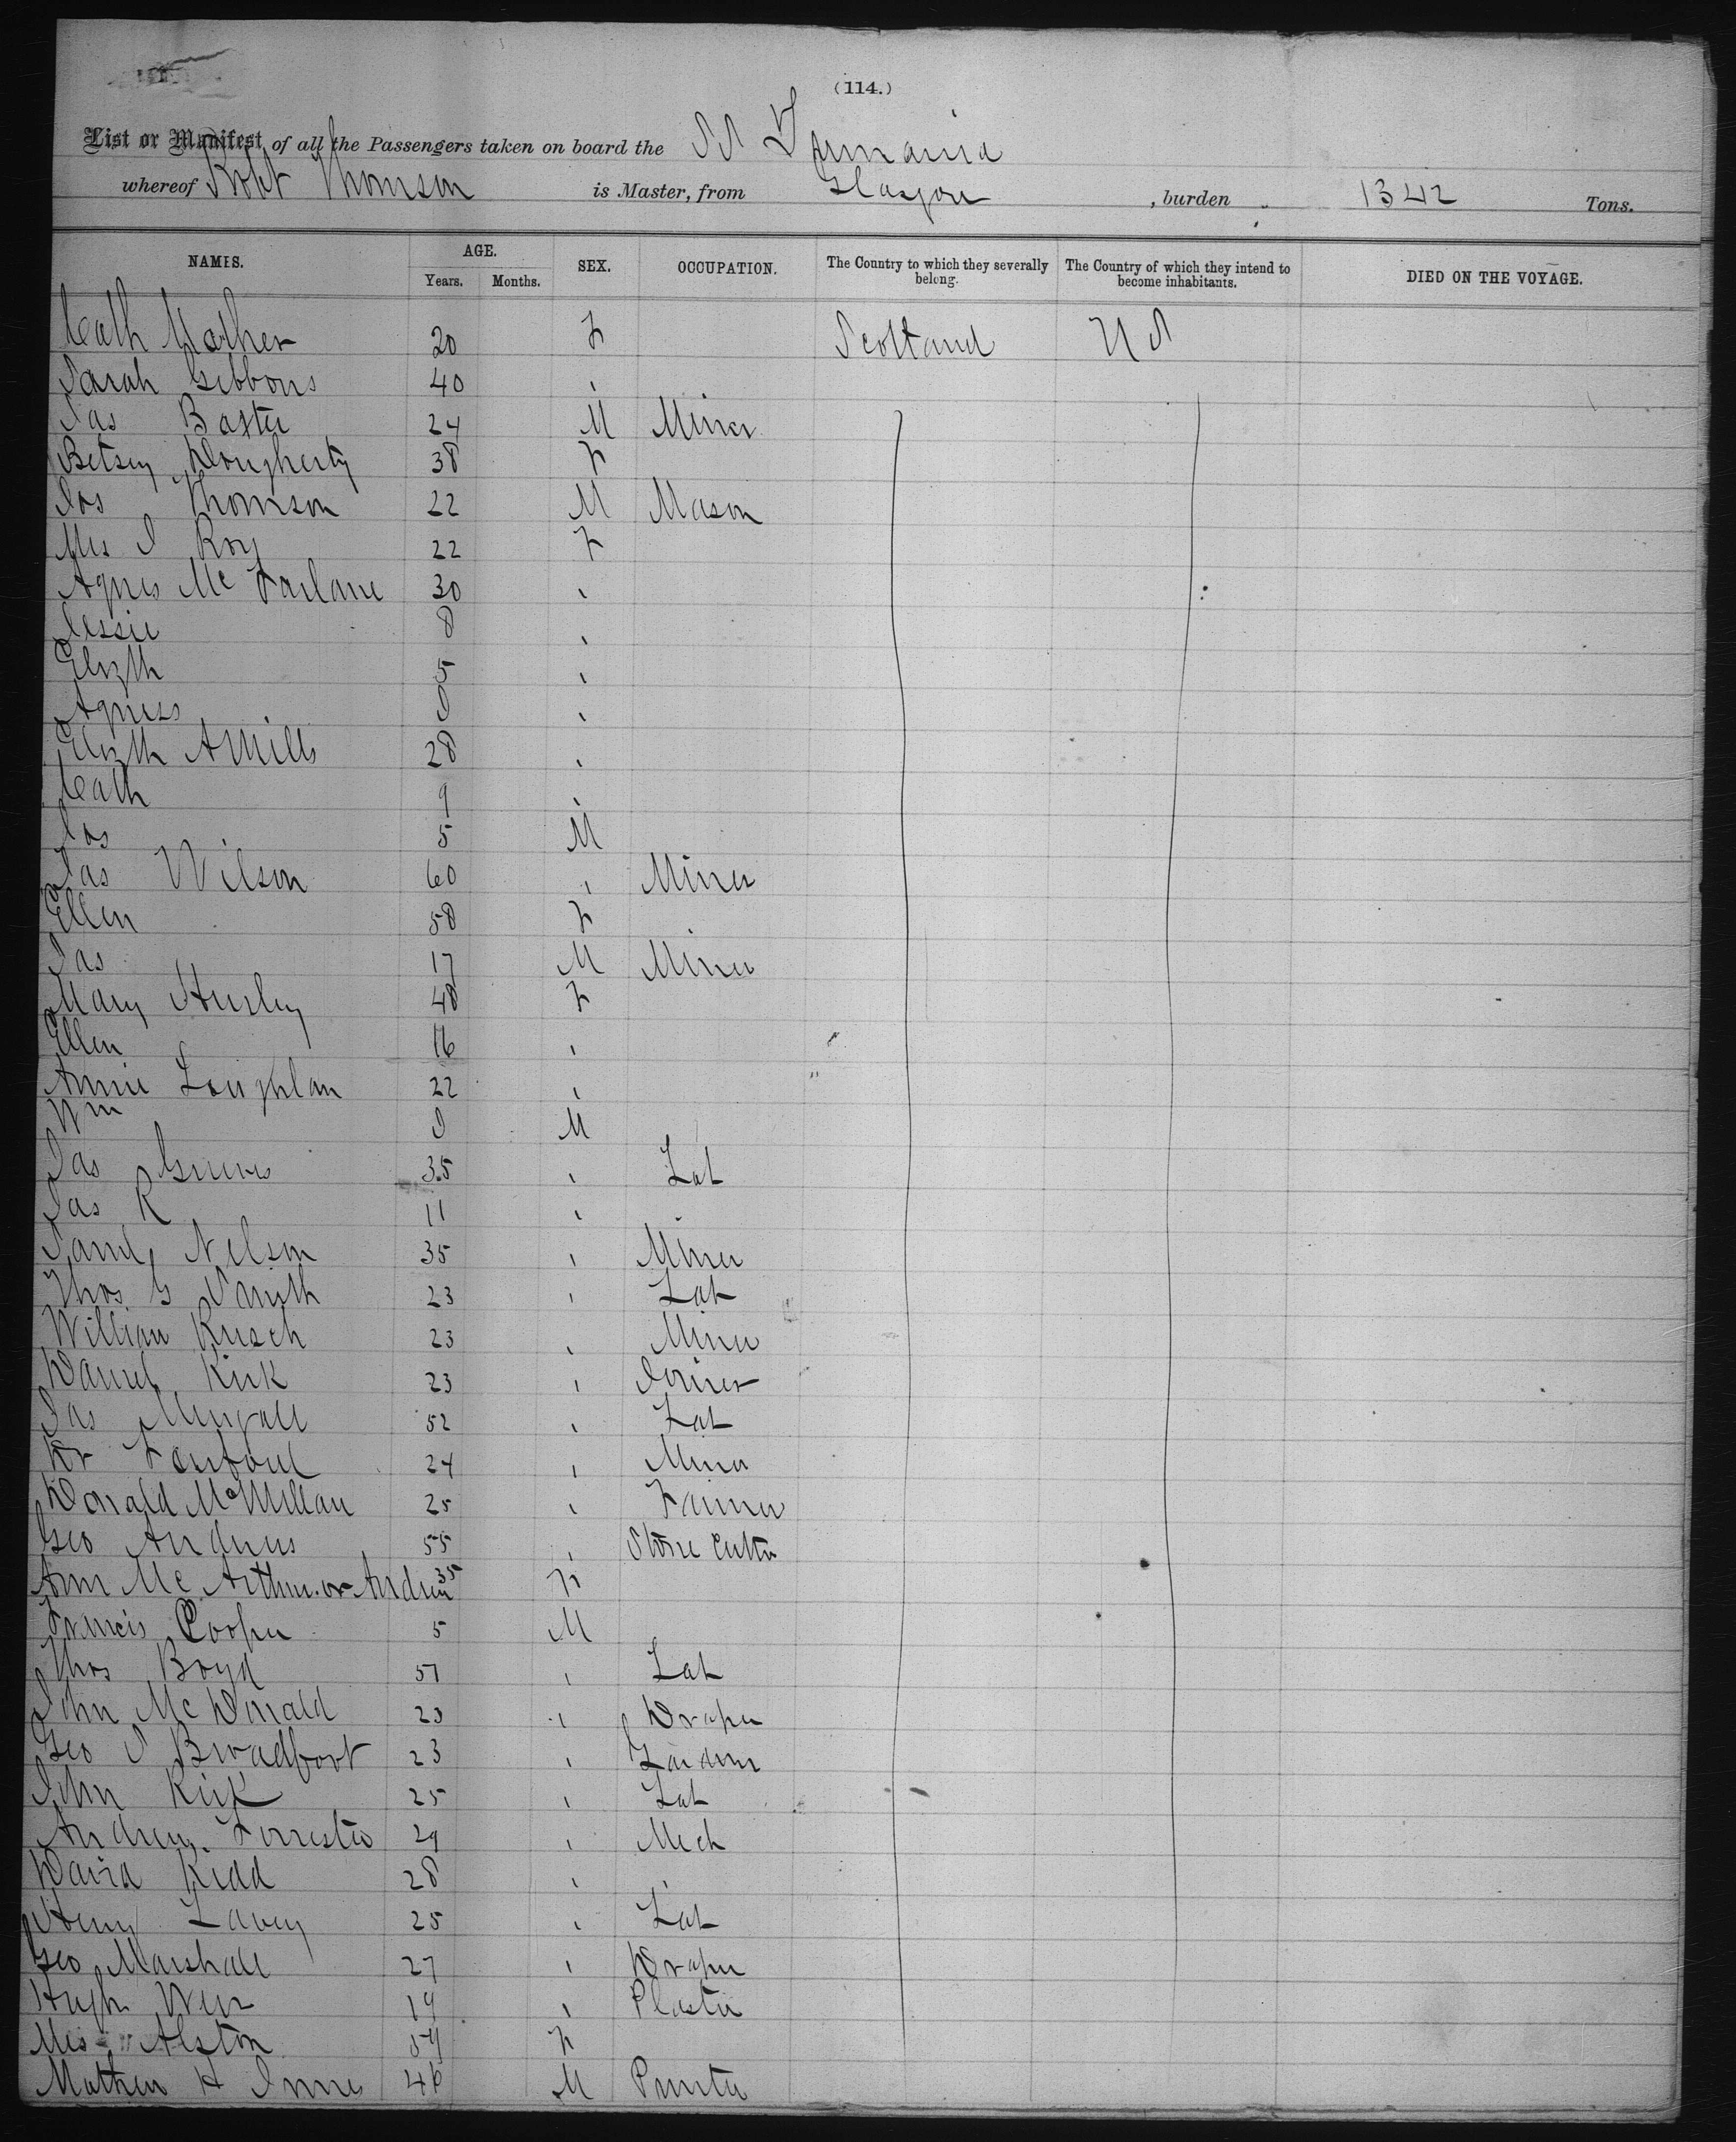 (114.)
List or Manifest of all the Passengers taken on board the SS
whereof Robt Thomson is Master, from Glasgow , burden 1342 Tons.
NAMES. AGE. SEX. OCCUPATION. The Country to which they severally belong. The Country of which they intend to become inhabitants. DIED ON THE VOYAGE.
Years. Months.
Cath Maher 20 F Scotland U S
Sarah Gibbons 40 "
Jas Baxter 24 M Miner
Betsey Dougherty 38 F
Jos Thomson 22 M Mason
Mrs J Roy 22 F
Agnes Mc Farlane 30 "
Jessie 8 "
Elizth 5 "
Agness "
Elizth A Mills 28 "
Cath 9 "
Jos 5 M
Jas Wilson 60 " Miner
Ellen 58 F
Jas 17 M Miner
Mary Hurley 48 F
Ellen 16 "
Annie Loughlan 22 "
Wm M
Jas 35 " Lab
Jas R 11 "
Saml Nelson 35 " Miner
Thos G Smith 23 " Lab
William 23 " Miner
Daniel Kirk 23 " Joiner
Jas 52 " Lab
24 " Miner
Donald McMillan 25 " Farmer
Geo Andrews 55 " Stone Cutter
Ann Mc Arthur or Andrew 35 F
Francis Cooper 5 M
Thos Boyd 51 " Lab
John Mc Donald 23 " Draper
Geo J Broadfoot 23 " Gardner
John Kirk 25 " Lab
Andrew Forrester 29 " Mech
David Kidd 28 " "
Henry Lavey 25 " Lab
Geo Marshall 27 " Draper
Hugh Weir 19 " Plaster
Mrs Alston 54 F
Mathew H Innes 46 M Printer